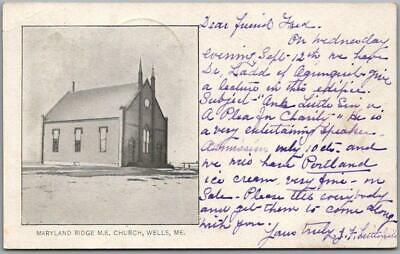 Dear friend Fred.
On Wednesday
evening Sept-12th we have
Dr. Ladd of Ogunquit-give
a lecture in this edifice.
Subject-"Little or
A Plea for Charity" He is
a very entertaining speaker.
Admission only 10 cts and
we also have Portland
ice cream, very fine-on
Sale-Please tell everybody
and get them to come along
with you.
Yours truly,
MARYLAND RIDGE M.E. CHURCH, WELLS, ME.